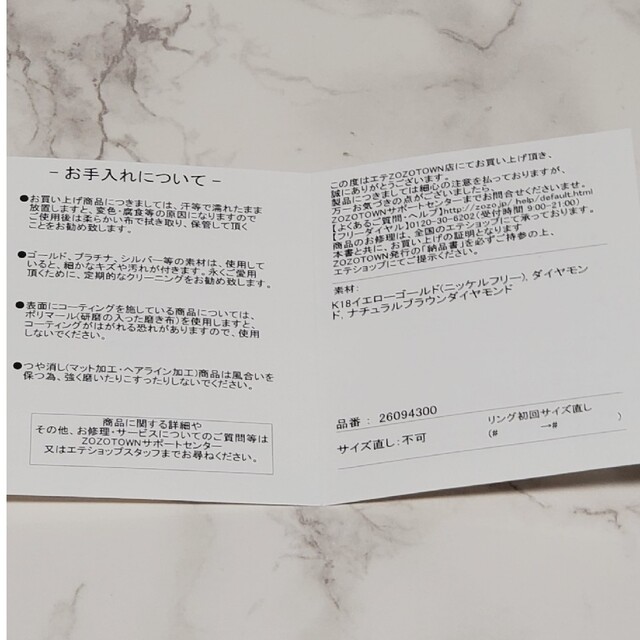 - お手入れについて -
●お買い上げ商品につきましては、汗等で濡れたまま
放置しますと、変色・腐食等の原因になりますので
ご使用後は柔らかい布で拭き取り、保管して頂く
ことをお勧め致します。
●ゴールド、プラチナ、シルバー等の素材は、使用して
いると、細かなキズや汚れが付きます。永くご愛用
頂くために、定期的なクリーニングをお勧め致します。
●表面にコーティングを施している商品については、
ポリマール(研磨の入った磨き布)を使用しますと、
コーティングがはがれる恐れがありますので、使用
しないでください。
●つや消し(マット加工・ヘアライン加工)商品は風合いを
保つ為、強く磨いたりこすったりしないでください。
商品に関する詳細や
その他、お修理・サービスについてのご質問等は
ZOZOTOWNサポートセンター
又はエテショップスタッフまでお尋ねください。
この度はエテZOZOTOWN店にてお買い上げ頂き、
誠にありがとうございます。
製品につきましては細心の注意を払っておりますが、
万一お気づきの点がございましたら、
ZOZOTOWNサポートセンターまでお問合せくださいませ。
【よくあるご質問・ヘルプ】http://zozo.jp/help/default.html
【フリーダイヤル】0120-30-6202(受付時間 9:00-21:00)
商品のお修理は、全国のエテショップにて承っております。
本書と共に、お買い上げの証明となります
ZOZOTOWN発行の「納品書」を必ずご持参の上、
エテショップにてご提示ください。
素材:
K18イエローゴールド(ニッケルフリー), ダイヤモン
ド, ナチュラルブラウンダイヤモンド
品番 : 26094300
サイズ直し:不可
リング初回サイズ直し
(# →# )